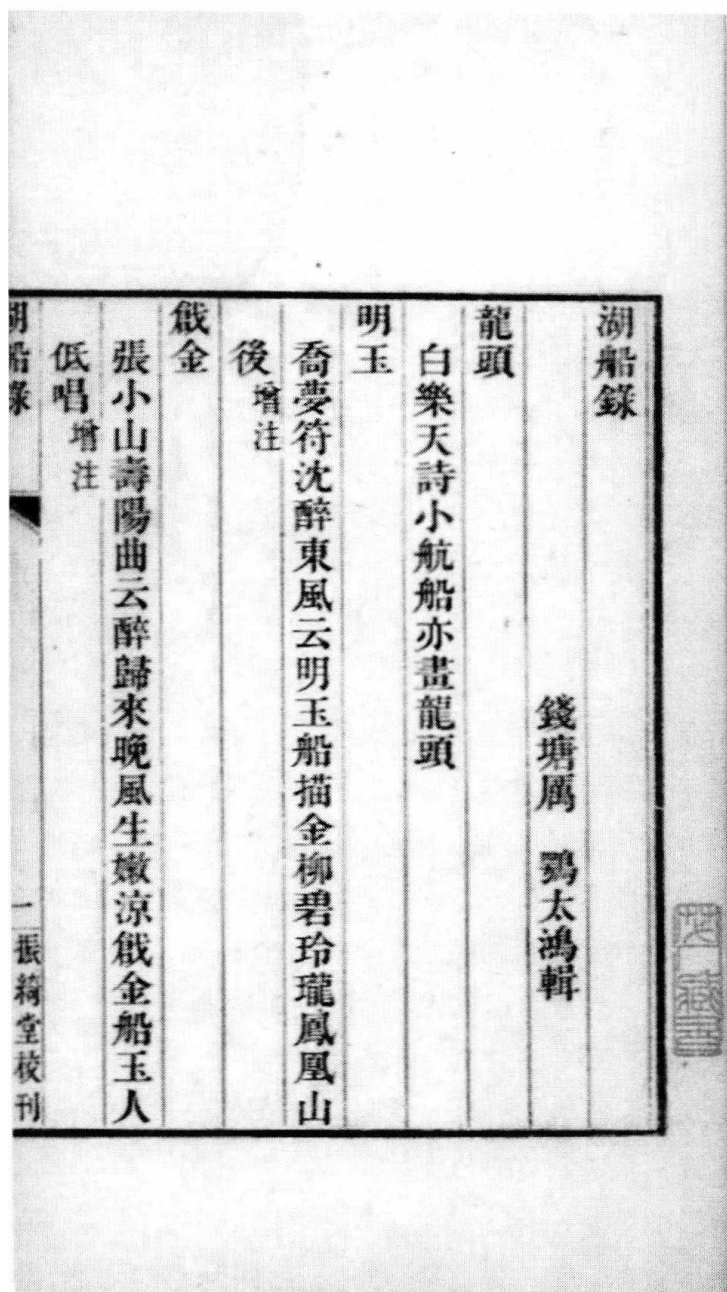 湖船錄
錢塘厲　鶚太鴻輯
龍頭
白樂天詩小航船亦畫龍頭
明玉
喬夢符沈醉東風云明玉船描金柳碧玲瓏鳳凰山
後增注
戧金
張小山壽陽曲云醉歸來晚風生嫩涼戧金船玉人
低唱增注
湖船錄　一　振綺堂校刊